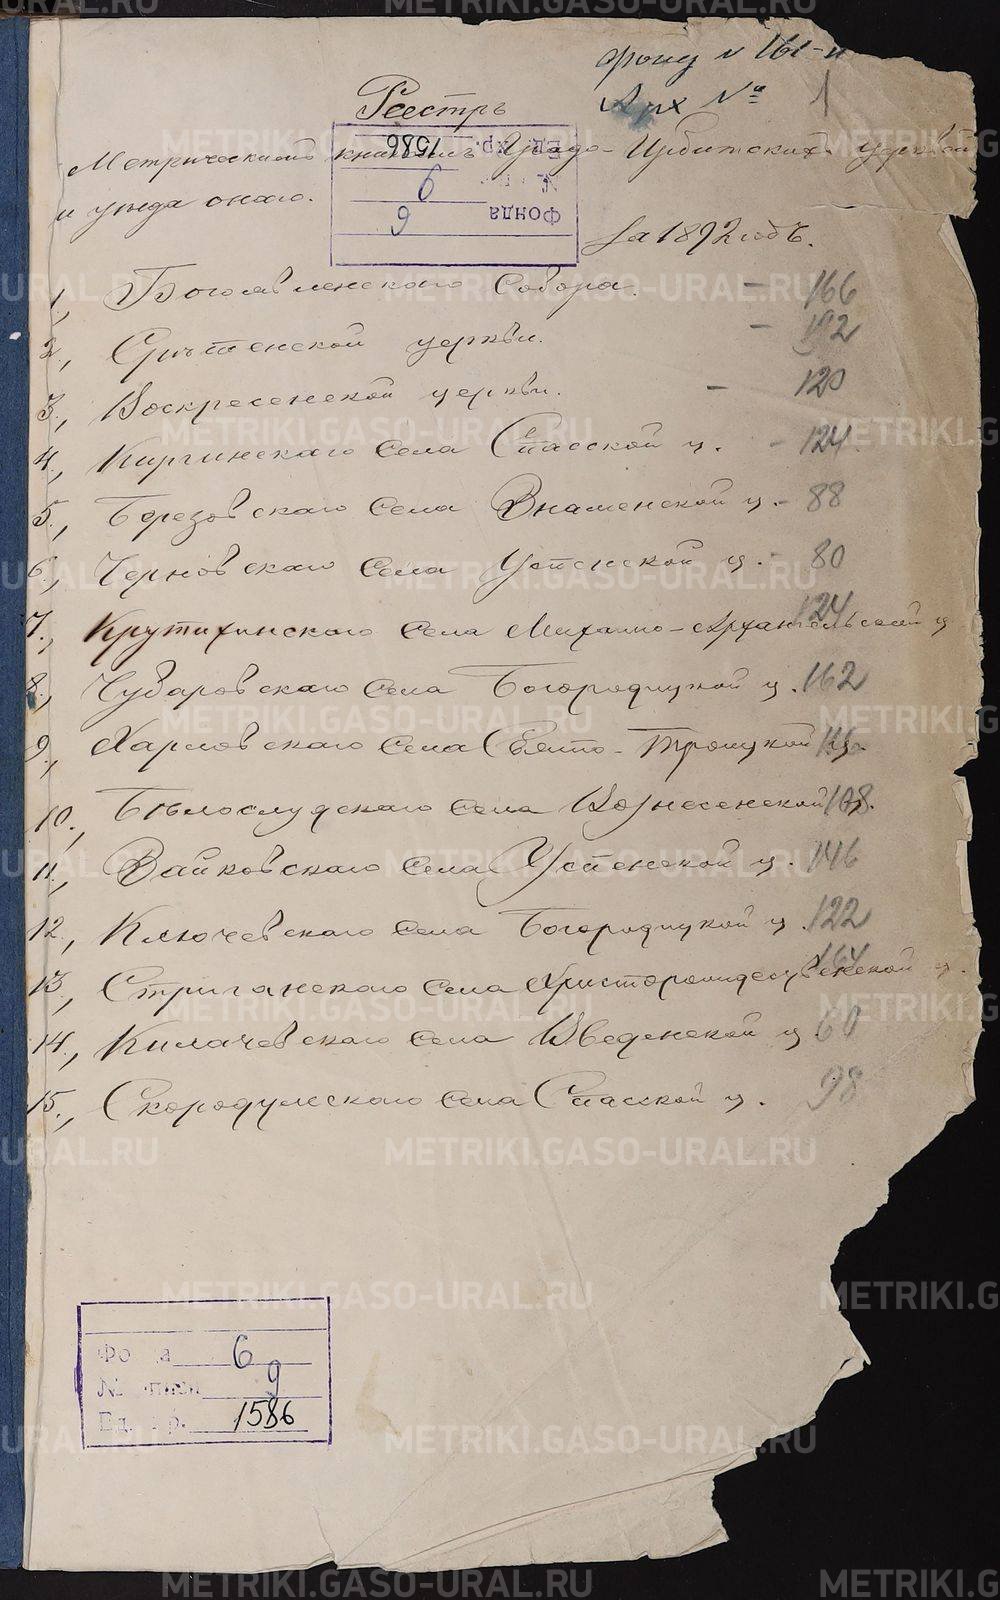 фонд № 161-и
Арх № 1
Реестръ
Метрическимъ книгамъ Градо-Ирбитскихъ церквей
и уѣзда онаго.
за 1892 годъ.
1., Богоявленскаго Собора. - 166
2., Срѣтенской церкви. - 192
3., Воскресенской церкви. - 120
4., Киргинскаго Села Спасской ц. - 124
5., Березовскаго Села Знаменской ц. - 88
6., Черновскаго Села Успенской ц. - 80
7., Крутихинскаго Села Михаило-Архангельской ц 124
8., Чубаровскаго Села Богородицкой ц. 162
9., Харловскаго Села Свято-Троицкой ц.
10., Бѣлослудскаго Села Вознесенской ц. 108
11., Зайковскаго Села Успенской ц. 146
12., Ключевскаго Села Богородицкой ц. 122
13., Стриганскаго Села Христорождественской ц. 164
14., Килачевскаго Села Введенской ц 60
15., Скородумскаго Села Спасской ц. 98
Фонда 6
№ описи 9
Ед. хр. 1586
Фонда 6
№ описи 9
Ед. хр. 1586
METRIKI.GASO-URAL.RU